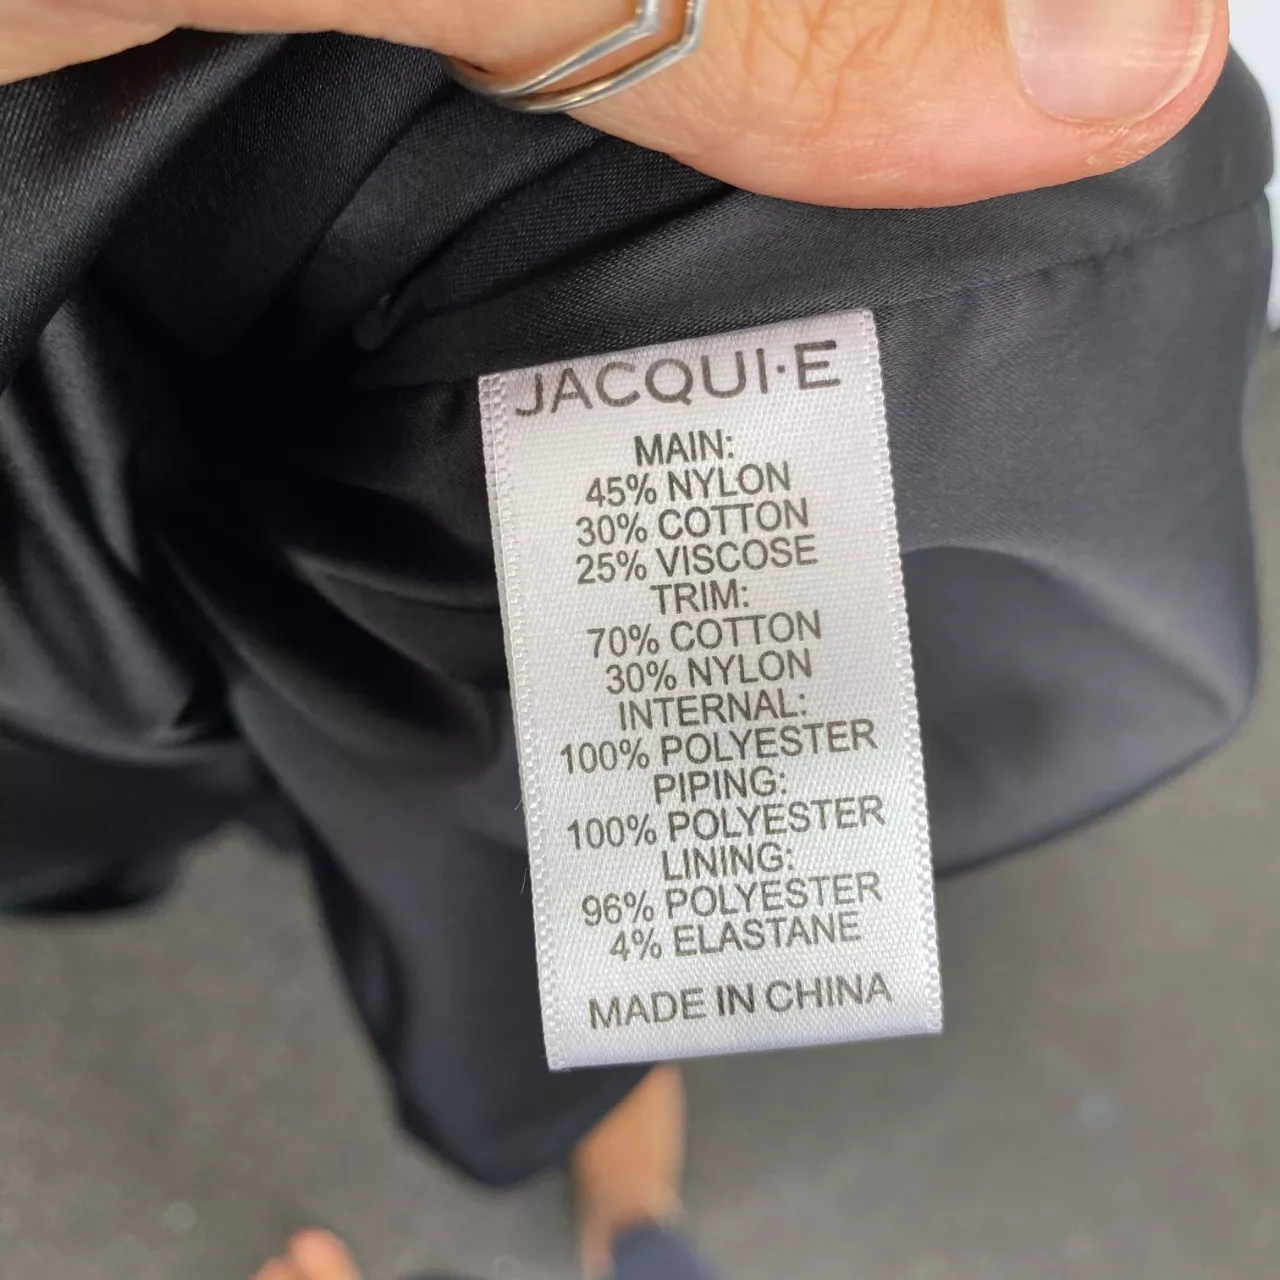 JACQUI·E
MAIN:
45% NYLON
30% COTTON
25% VISCOSE
TRIM:
70% COTTON
30% NYLON
INTERNAL:
100% POLYESTER
PIPING:
100% POLYESTER
LINING:
96% POLYESTER
4% ELASTANE
MADE IN CHINA